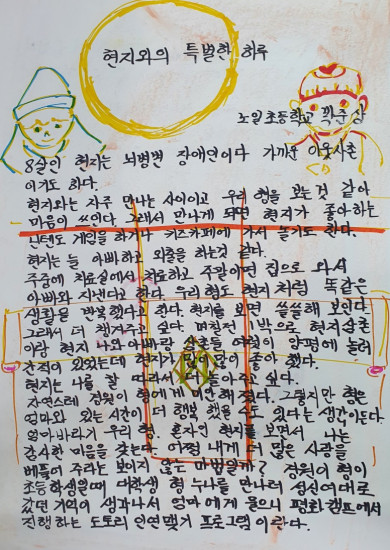 현지와의 특별한 하루
노일초등학교 곽준상
8살인 현지는 뇌병변 장애인이다 가까운 이웃사촌
이기도 하다.
현지와는 자주 만나는 사이이고 우리 형을 보는것 같아
마음이 쓰인다 그래서 만나게 되면 현지가 좋아하는
닌텐도 게임을 하거나 키즈카페에 가서 놀기도 한다.
현지는 늘 아빠하고 외출을 하는것 같다.
주중에 치료실에서 치료하고 주말이면 집으로 와서
아빠와 지낸다고 한다. 우리형도 현지 처럼 똑같은
생활을 반복했다고 한다. 현지를 보면 쓸쓸해 보인다.
그래서 더 챙겨주고 싶다. 며칠전 1박으로 현지삼촌
이랑 현지 나와아빠랑 삼촌들 여럿이 양평에 놀러
간적이 있었는데 현지가 많이 많이 좋아 했다.
현지는 나를 잘 따라서 더 놀아주고 싶다.
자연스레 경원이 형에게 미안해 졌다. 그렇지만 형은
엄마와 있는 시간이 더 행복 했을 수도 있다는 생각이든다.
엄마바라기 우리 형. 혼자인 현지를 보면서 나는
감사한 마음을 갖는다. 어쩜 내게 더 많은 사랑을
베풀어 주라는 보이지 않는 마법일까? 경원이 형이
초등학생일때 대학생 형 누나를 만나러 성신여대로
갔던 기억이 생각나서 엄마에게 물으니 평화캠프에서
진행하는 도토리 인연맺기 프로그램이란다.